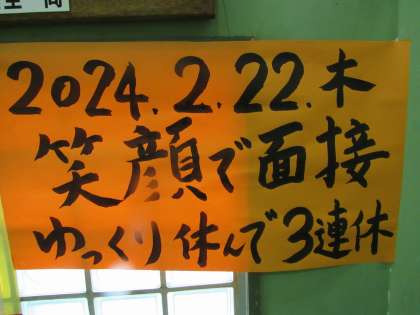 2024.2.22.木
笑顔で面接
ゆっくり休んで3連休